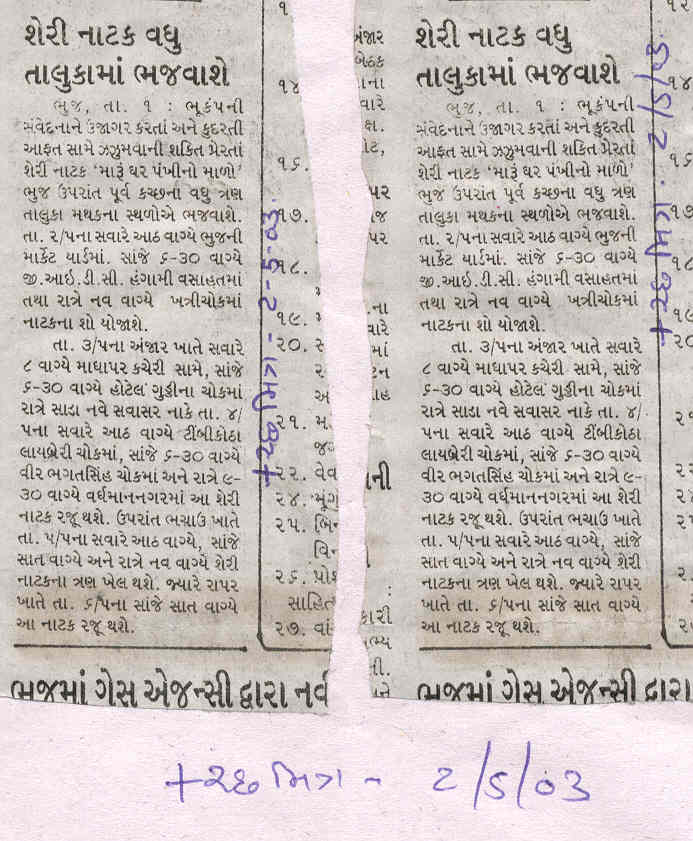 શેરી નાટક વધુ
તાલુકામાં ભજવાશે
ભુજ, તા. ૧ : ભૂકંપની
સંવેદનાને ઉજાગર કરતાં અને કુદરતી
આફત સામે ઝઝુમવાની શકિત પ્રેરતાં
શેરી નાટક ‘મારૂં ઘર પંખીનો માળો’
ભુજ ઉપરાંત પૂર્વ કચ્છના વધુ ત્રણ
તાલુકા મથકના સ્થળોએ ભજવાશે.
તા. ૨/૫ના સવારે આઠ વાગ્યે ભુજની
માર્કેટ યાર્ડમાં. સાંજે ૬-૩૦ વાગ્યે
જી.આઇ.ડી.સી. હંગામી વસાહતમાં
તથા રાત્રે નવ વાગ્યે ખત્રીચોકમાં
નાટકના શો યોજાશે.
તા. ૩/૫ના અંજાર ખાતે સવારે
૮ વાગ્યે માધાપર કચેરી સામે, સાંજે
૬-૩૦ વાગ્યે હોટેલ ગુડ્ડીના ચોકમાં
રાત્રે સાડા નવે સવાસર નાકે તા. ૪/
૫ના સવારે આઠ વાગ્યે ટીંબીકોઠા
લાયબ્રેરી ચોકમાં, સાંજે ૬-૩૦ વાગ્યે
વીર ભગતસિંહ ચોકમાં અને રાત્રે ૯-
૩૦ વાગ્યે વર્ધમાનનગરમાં આ શેરી
નાટક રજૂ થશે. ઉપરાંત ભચાઉ ખાતે
તા. ૫/૫ના સવારે આઠ વાગ્યે, સાંજે
સાત વાગ્યે અને રાત્રે નવ વાગ્યે શેરી
નાટકના ત્રણ ખેલ થશે. જ્યારે રાપર
ખાતે તા. ૬/૫ના સાંજે સાત વાગ્યે
આ નાટક રજૂ થશે.
ભુજમાં ગેસ એજન્સી દ્વારા નવ
કચ્છ મિત્ર - ૨-૫-૦૩.
૧
૧૪
૧૬.
૧૭.
૧૮.
૧૯.
૨૦.
૨૧.
૨૨.
૨૪.
૨૫.
૨૬.
સાહિત
૨૭.
અંજાર
બેઠક
શેરી નાટક વધુ
તાલુકામાં ભજવાશે
ભુજ, તા. ૧ : ભૂકંપની
સંવેદનાને ઉજાગર કરતાં અને કુદરતી
આફત સામે ઝઝુમવાની શકિત પ્રેરતાં
શેરી નાટક ‘મારૂં ઘર પંખીનો માળો’
ભુજ ઉપરાંત પૂર્વ કચ્છના વધુ ત્રણ
તાલુકા મથકના સ્થળોએ ભજવાશે.
તા. ૨/૫ના સવારે આઠ વાગ્યે ભુજની
માર્કેટ યાર્ડમાં. સાંજે ૬-૩૦ વાગ્યે
જી.આઇ.ડી.સી. હંગામી વસાહતમાં
તથા રાત્રે નવ વાગ્યે ખત્રીચોકમાં
નાટકના શો યોજાશે.
તા. ૩/૫ના અંજાર ખાતે સવારે
૮ વાગ્યે માધાપર કચેરી સામે, સાંજે
૬-૩૦ વાગ્યે હોટેલ ગુડ્ડીના ચોકમાં
રાત્રે સાડા નવે સવાસર નાકે તા. ૪/
૫ના સવારે આઠ વાગ્યે ટીંબીકોઠા
લાયબ્રેરી ચોકમાં, સાંજે ૬-૩૦ વાગ્યે
વીર ભગતસિંહ ચોકમાં અને રાત્રે ૯-
૩૦ વાગ્યે વર્ધમાનનગરમાં આ શેરી
નાટક રજૂ થશે. ઉપરાંત ભચાઉ ખાતે
તા. ૫/૫ના સવારે આઠ વાગ્યે, સાંજે
સાત વાગ્યે અને રાત્રે નવ વાગ્યે શેરી
નાટકના ત્રણ ખેલ થશે. જ્યારે રાપર
ખાતે તા. ૬/૫ના સાંજે સાત વાગ્યે
આ નાટક રજૂ થશે.
ભુજમાં ગેસ એજન્સી દ્વારા
કચ્છ મિત્ર - ૨/૫/૦૩
કચ્છ મિત્ર - ૨/૫/૦૩